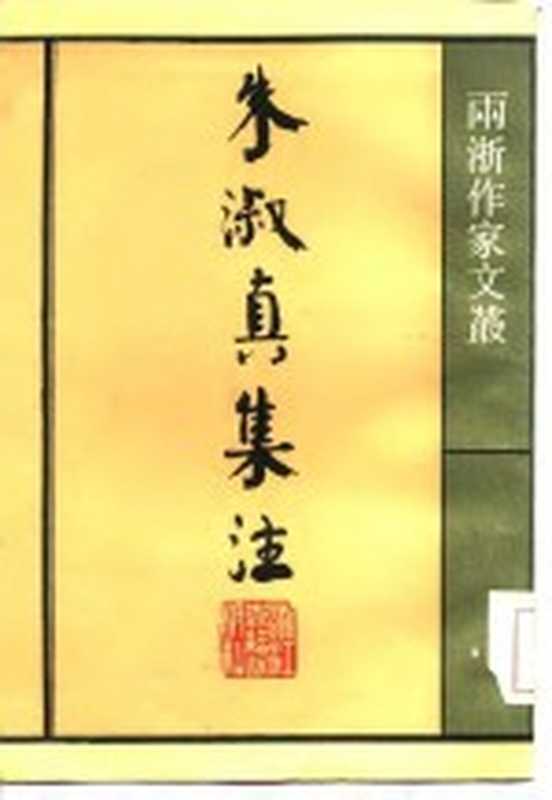 兩浙作家文叢
朱淑真集注